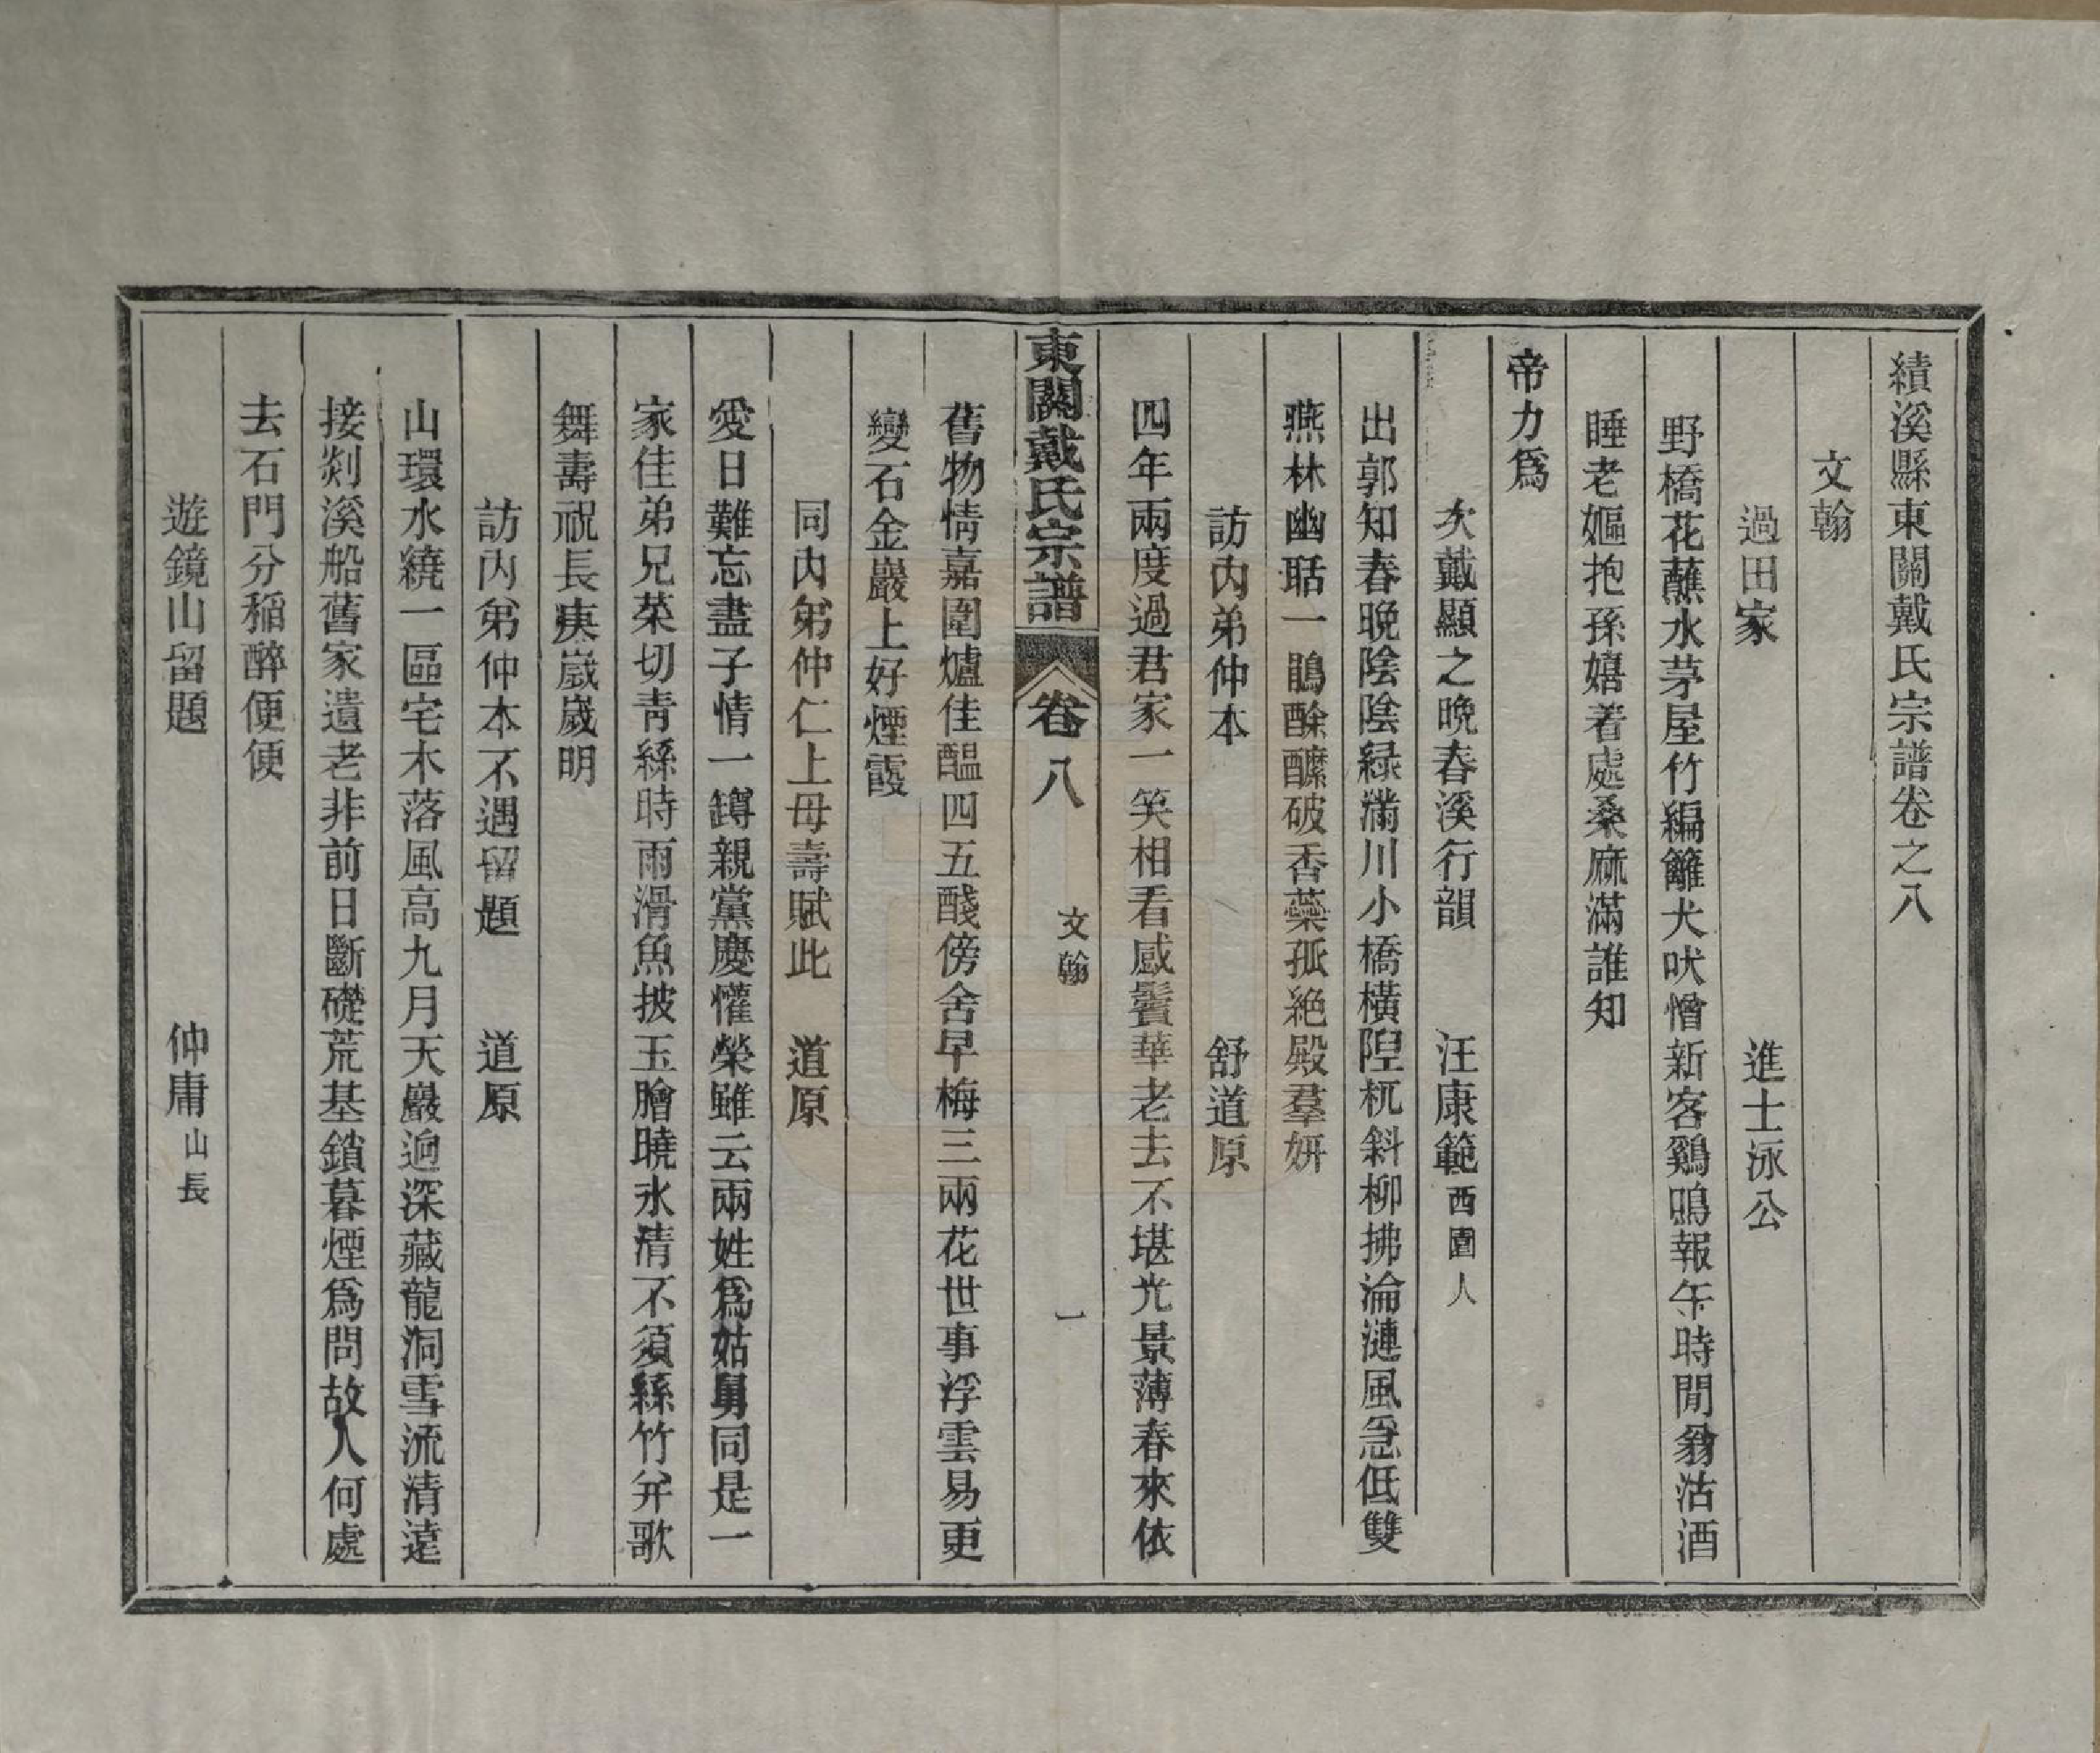 績溪縣東關戴氏宗譜卷之八
文翰
過田家　進士泳公
野橋花蘸水茅屋竹編籬犬吠憎新客鷄鳴報午時閒翁沽酒
睡老嫗抱孫嬉着處桑麻滿誰知
帝力爲
次戴顯之晚春溪行韻　汪康範西園人
出郭知春晚陰陰緑滿川小橋横隉杌斜柳拂淪漣風急低雙
燕林幽聒一鵑酴醾破香蘂孤絶殿羣妍
訪内弟仲本　舒道原
四年兩度過君家一笑相看感鬢華老去不堪光景薄春來依
東關戴氏宗譜　卷八　文翰　一
舊物情嘉圍爐佳醖四五醆傍舍早梅三兩花世事浮雲易更
變石金巖上好煙霞
同内弟仲仁上母壽賦此　道原
愛日難忘盡子情一罇親黨慶懽榮雖云兩姓爲姑舅同是一
家佳弟兄菜切青絲時雨滑魚披玉膾曉氷清不須絲竹弁歌
舞壽祝長庚歲歲明
訪内弟仲本不遇留題　道原
山環水繞一區宅木落風高九月天巖逈深藏龍洞雪流清遠
接剡溪船舊家遺老非前日斷礎荒基鎖暮煙爲問故人何處
去石門分稲醉便便
遊鏡山留題　仲庸山長